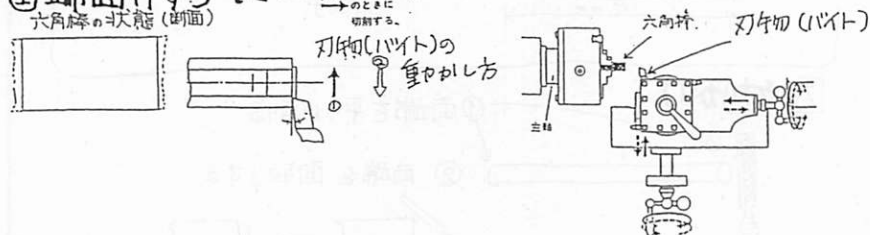 のときに
切削する。
六角棒の状態(断面)
刃物(バイト)の
動かし方
①
②
六角棒
刃物(バイト)
主軸